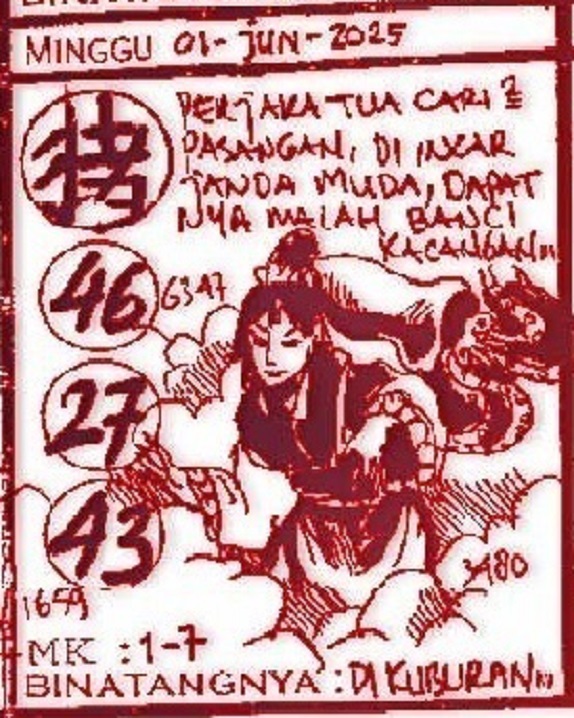 MINGGU 01-JUN-2025
PERJAKA TUA CARI2
PASANGAN, DI INCAR
JANDA MUDA, DAPAT
NYA MALAH BANCI
KACANGAN...
46 6347
27
43
3480
1659
MK : 1-7
BINATANGNYA : DI KUBURAN...